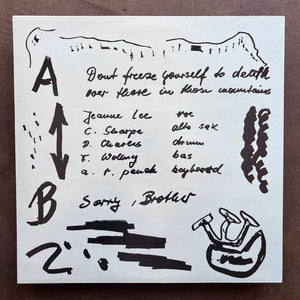 A
Dont freeze yourself to death
over there in those mountains
Jeanne Lee voc
C. Sharpe alto sax
D. Charles drum
F. Wollny bas
a. r. penck keyboard
B
Sorry, Brother